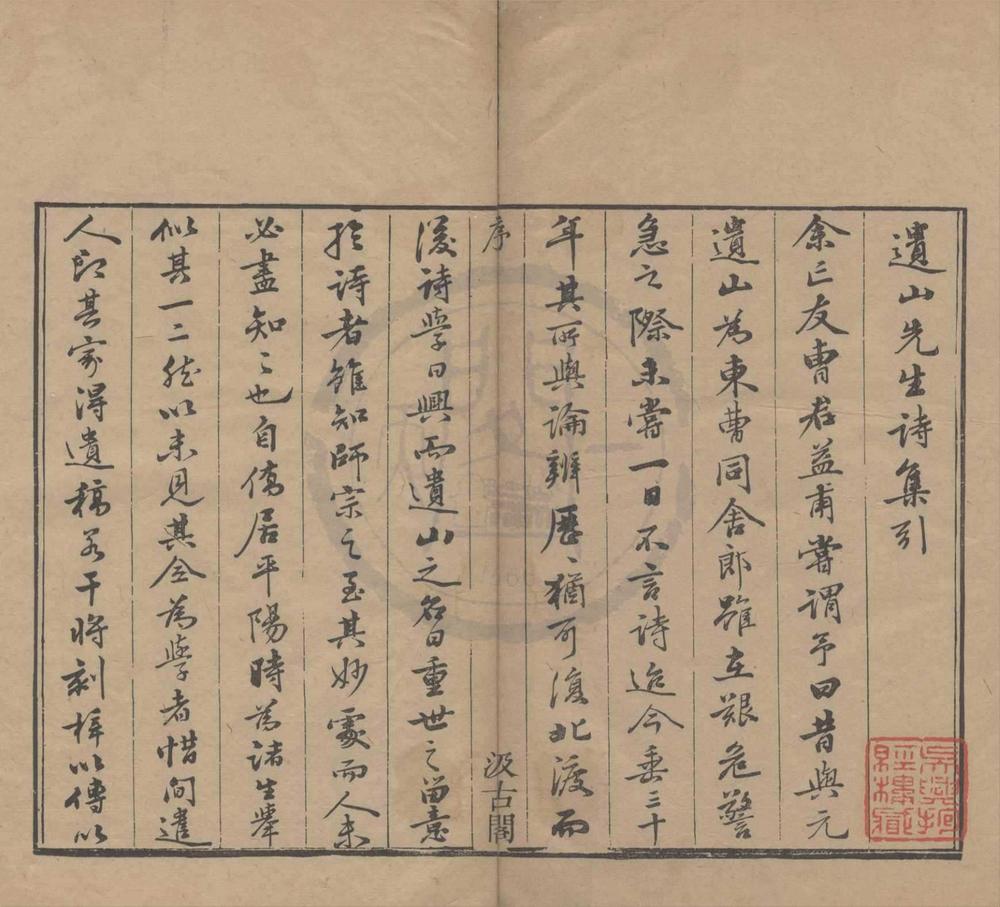 遺山先生詩集引
余亡友曹君益甫嘗謂予曰昔與元
遺山為東曹同舍郎雖在艱危警
急之際未嘗一日不言詩迨今垂三十
年其所與論辨歷〻猶可復北渡而
序
汲古閣
後詩學日興而遺山之名日重世之留意
於詩者雖知師宗之至其妙處而人未
必盡知〻也自僑居平陽時為諸生舉
似其一二然以未見其全為學者惜間遣
人即其家得遺稿若干將刻梓以傳以